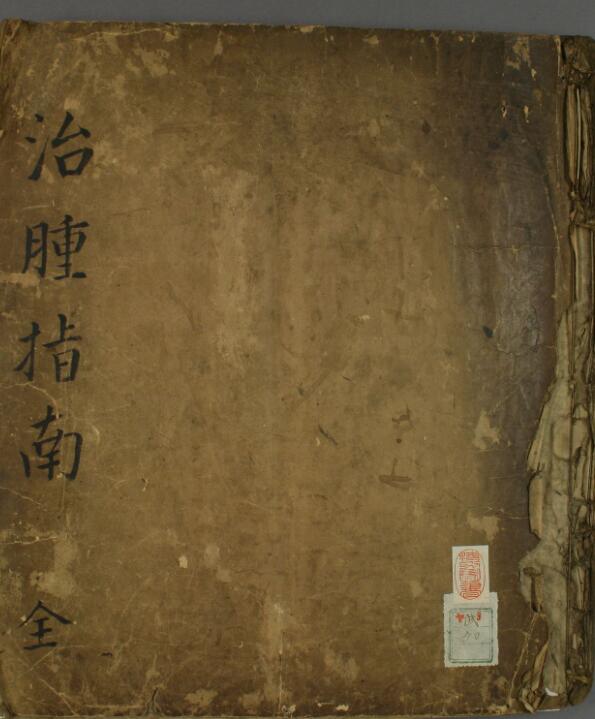 治腫指南 全